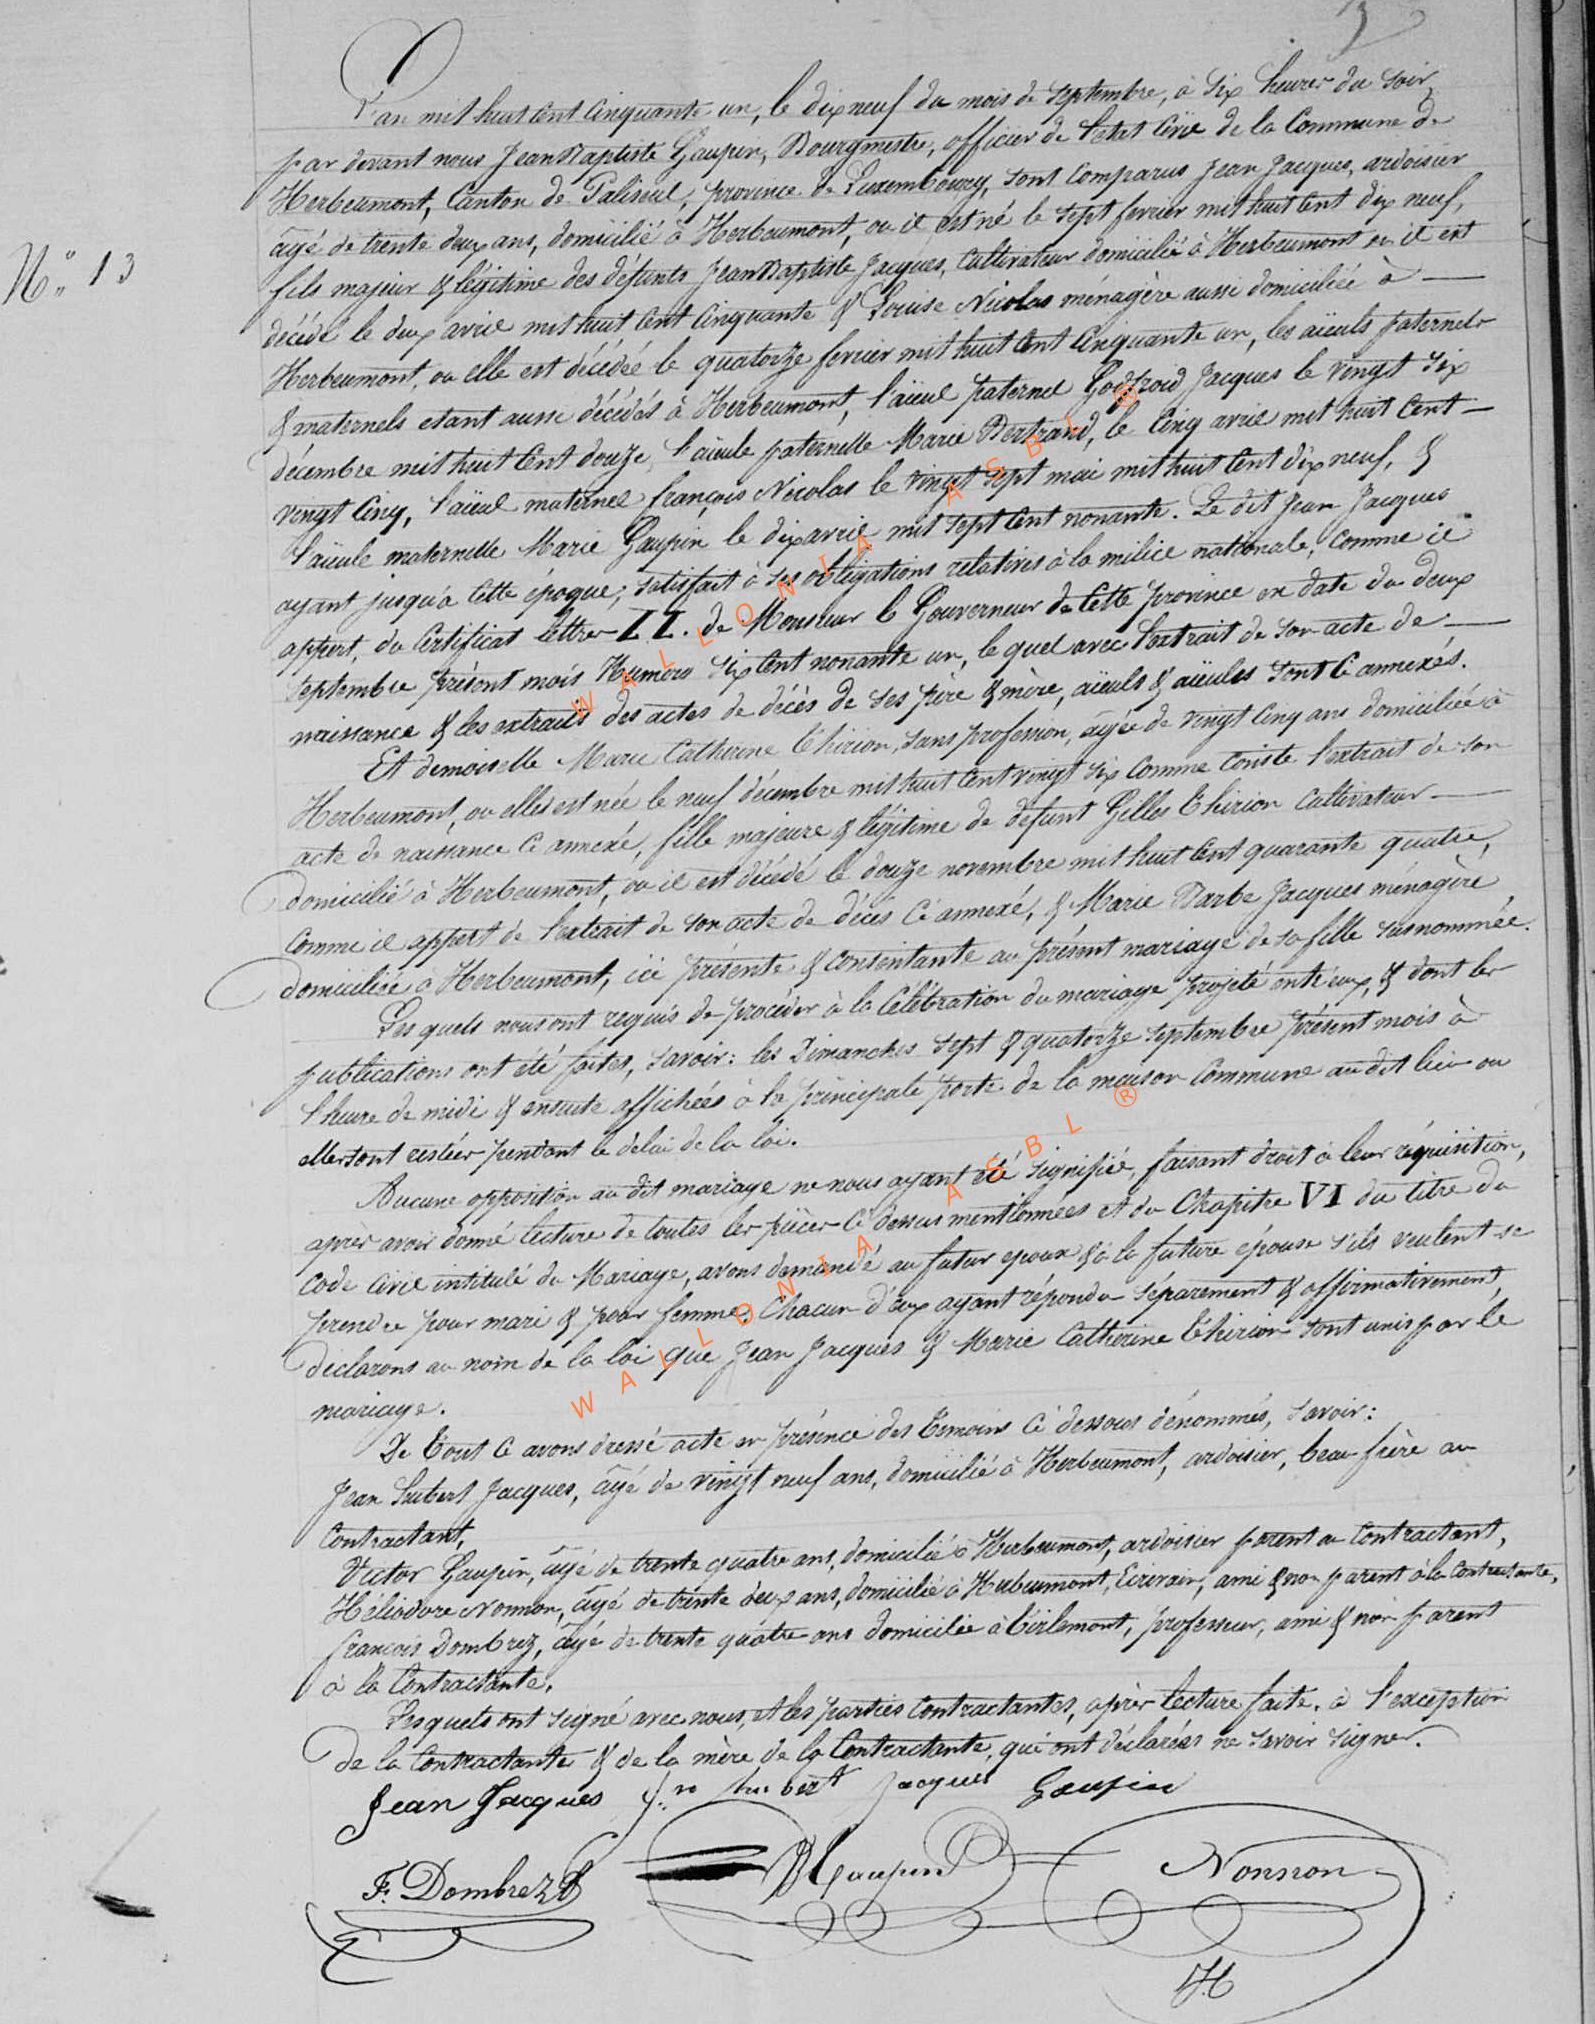 3
N° 13
L'an mil huit cent cinquante un, le dix neuf du mois de septembre, à six heures du soir,
par devant nous Jean Baptiste Gaupin, Bourgmestre, officier de l'état civil de la Commune de
Herbeumont, Canton de Paliseul, province de Luxembourg, sont comparus Jean Jacques, ardoisier
âgé de trente deux ans, domicilié à Herbeumont, ou il est né le sept fevrier mil huit cent dix neuf,
fils majeur & légitime des défunts Jean Baptiste Jacques, cultivateur domicilié à Herbeumont ou il est
décédé le deux avril mil huit cent cinquante & Louise Nicolas ménagère aussi domiciliée à —
Herbeumont, ou elle est décédée le quatorze fevrier mil huit cent cinquante un, les aïeuls paternels
& maternels etant aussi décédés à Herbeumont, l'aïeul paternel Godfroid Jacques le vingt six
décembre mil huit cent douze, l'aïeule paternelle Marie Bertrand, le cinq avril mil huit cent —
vingt cinq, l'aïeul maternel françois Nicolas le vingt sept mai mil huit cent dix neuf, &
l'aïeule maternelle Marie Gaupin le dix avril mil sept cent nonante. Le dit Jean Jacques
ayant jusqu'à cette époque, satisfait à ses obligations relatives à la milice nationale, comme il
appert, du certificat lettres LL. de Monsieur le Gouverneur de cette province en date du deux
septembre présent mois Numero six cent nonante un, le quel avec l'extrait de son acte de —
naissance & les extraits des actes de décès de ses père & mère, aïeuls & aïeules sont ci annexés.
Et demoiselle Marie Catherine Thirion, sans profession, âgée de vingt cinq ans domiciliée à
Herbeumont, ou elle est née le neuf décembre mil huit cent vingt six comme coniste l'extrait de son
acte de naissance ci annexé, fille majeure & légitime de défunt Gilles Thirion cultivateur —
domicilié à Herbeumont, ou il est décédé le douze novembre mil huit cent quarante quatre,
comme il appert de l'extrait de son acte de décès ci annexé, & Marie Barbe Jacques ménagère
domiciliée à Herbeumont, ici présente & consentante au présent mariage de sa fille susnommée.
Les quels nous ont requis de procéder à la célébration du mariage projeté entr'eux, & dont les
publications ont été faites, savoir: les Dimanches sept & quatorze septembre présent mois à
l'heure de midi & ensuite affichées à la principale porte de la maison Commune au dit lieu ou
elles sont restées pendant le delai de la loi.
Aucune opposition au dit mariage ne nous ayant été signifiée, faisant droit à leur réquisition,
après avoir donné lecture de toutes les pièces ci dessus mentionnées et du Chapitre VI du titre du
code civil intitulé du Mariage, avons demandé au futur epoux & à la future épouse s'ils veulent se
prendre pour mari & pour femme, Chacun d'eux ayant répondu séparement & affirmativement,
déclarons au nom de la loi que Jean Jacques & Marie Catherine Thirion sont unis par le
mariage.
De tout ce avons dressé acte en présence des témoins ci dessous dénommés, savoir:
Jean hubert Jacques, âgé de vingt neuf ans, domicilié à Herbeumont, ardoisier, beau frère au
Contractant,
Victor Gaupin, âgé de trente quatre ans, domicilié à Herbeumont, ardoisier parent au Contractant,
Héliodore Nonnon, âgé de trente deux ans, domicilié à Herbeumont, Ecrivain, ami & non parent à la Contractante,
françois Dombrez, âgé de trente quatre ans domicilié à tirlemont, professeur, ami & non parent
à la Contractante.
Lesquels ont signé avec nous, et les parties Contractantes, après lecture faite, à l'exception
de la Contractante & de la mère de la Contractante, qui ont déclarées ne savoir signer.
Jean Jacques Jn hubert Jacques Gaupin
F. Dombrez JB Gaupin Nonnon
H
WALLONIA ASBL ®
WALLONIA ASBL ®